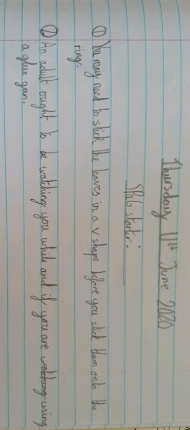 Thursday 11th June 2020
SPaG starter:
① You may need to stick the leaves in a v shape before you stick them onto the
ring.
② An adult ought to be watching you while and if you are using
a glue gun.